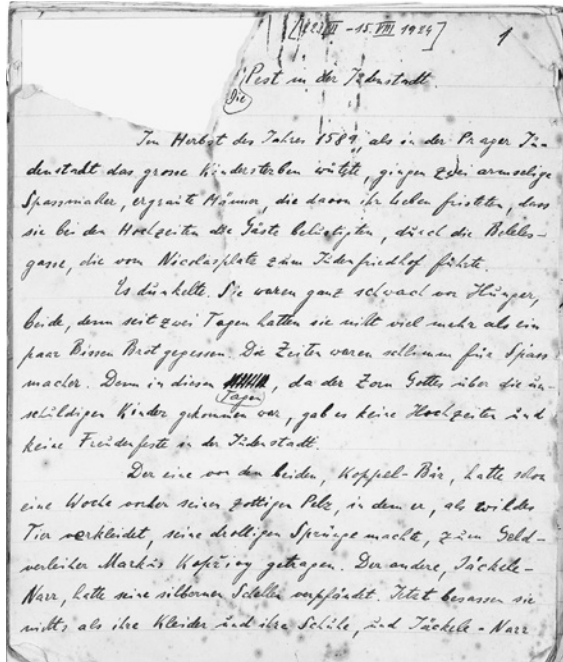 [23 VII – 15. VIII 1924] 1
Pest in der Judenstadt.
Die
Im Herbst des Jahres 1589, als in der Prager Ju-
denstadt das grosse Kindersterben wütete, gingen zwei armselige
Spassmacher, ergraute Männer, die davon ihr Leben fristeten, dass
sie bei den Hochzeiten die Gäste belustigten, durch die Beleles-
gasse, die vom Nicolasplatz zum Judenfriedhof führte.
Es dunkelte. Sie waren ganz schwach vor Hunger,
beide, denn seit zwei Tagen hatten sie nicht viel mehr als ein
paar Bissen Brot gegessen. Die Zeiten waren schlimm für Spass
macher. Denn in diesen , da der Zorn Gottes über die un-
Tagen
schuldigen Kinder gekommen war, gab es keine Hochzeiten und
keine Freudenfeste in der Judenstadt.
Der eine von den beiden, Koppel-Bär, hatte schon
eine Woche vorher seinen zottigen Pelz, in dem er, als wildes
Tier verkleidet, seine drolligen Sprünge machte, zum Geld-
verleiher Markus Koprivy getragen. Der andere, Jäckele-
Narr, hatte seine silbernen Schellen verpfändet. Jetzt besassen sie
nichts als ihre Kleider und ihre Schuhe, und Jäckele-Narr